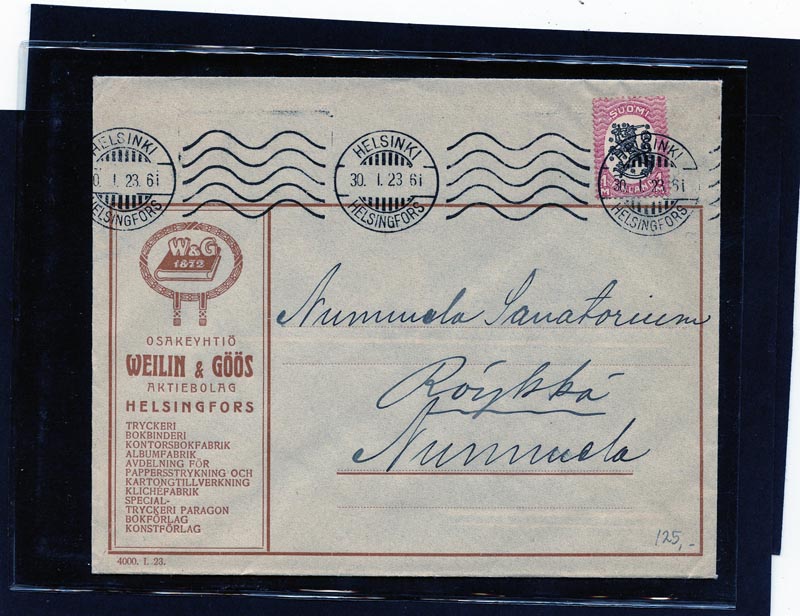 HELSINKI
0. I. 23. 6i
HELSINGFORS
HELSINKI
30. I. 23 6i
HELSINGFORS
SUOMI
1 M
FINLAND
1 M
SINKI
30. 23 6i
HELSINGFORS
W&G
1872
OSAKEYHTIÖ
WEILIN & GÖÖS
AKTIEBOLAG
HELSINGFORS
TRYCKERI
BOKBINDERI
KONTORSBOKFABRIK
ALBUMFABRIK
AVDELNING FÖR
PAPPERSSTRYKNING OCH
KARTONGTILLVERKNING
KLICHÉFABRIK
SPECIAL-
TRYCKERI PARAGON
BOKFÖRLAG
KONSTFÖRLAG
4000. I. 23.
Nummela Sanatorium
Röykkä
Nummela
125,-